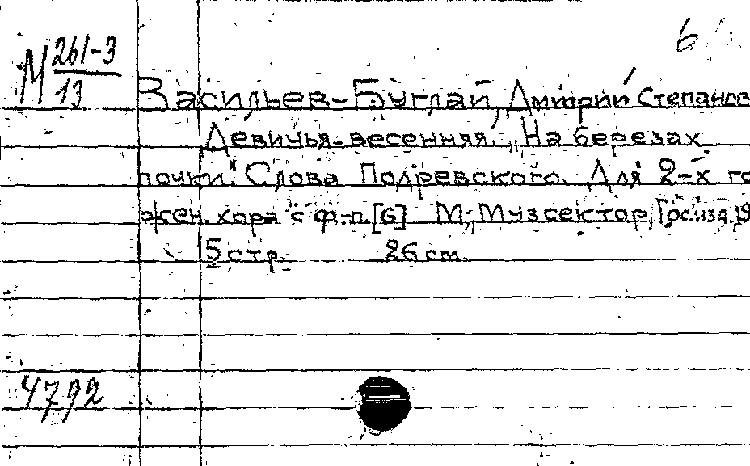 6
М 261-3
13
Васильев-Буглай, Дмитрий Степанов
Девичья-весенняя. „На березах
почки". Слова Подревского. Для 2-х го
жен. хора с ф-п. [G] М., Музсектор, Госизд, 19
5 стр. 26 cm.
4792